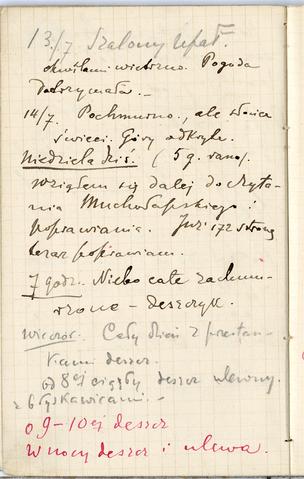 13/7 Szalony upał.
chwilami wietrzno. Pogoda
dotrzymała. –
14/7. Pochmurno, ale słońce
świeci. Góry odkryte.
Niedziela dziś. (5 g. rano).
wziąłem się dalej do czyta-
nia Muchołapskiego i
poprawiania. Już 172 strony
teraz poprawiam.
7 godz. Niebo całe zachmu-
rzone – deszczyk.
wieczór. Cały dzień z przestan-
kami deszcz.
od 8ej ciągły deszcz ulewny.
z błyskawicami –
o 9–10ej deszcz
W nocy deszcz i ulewa.